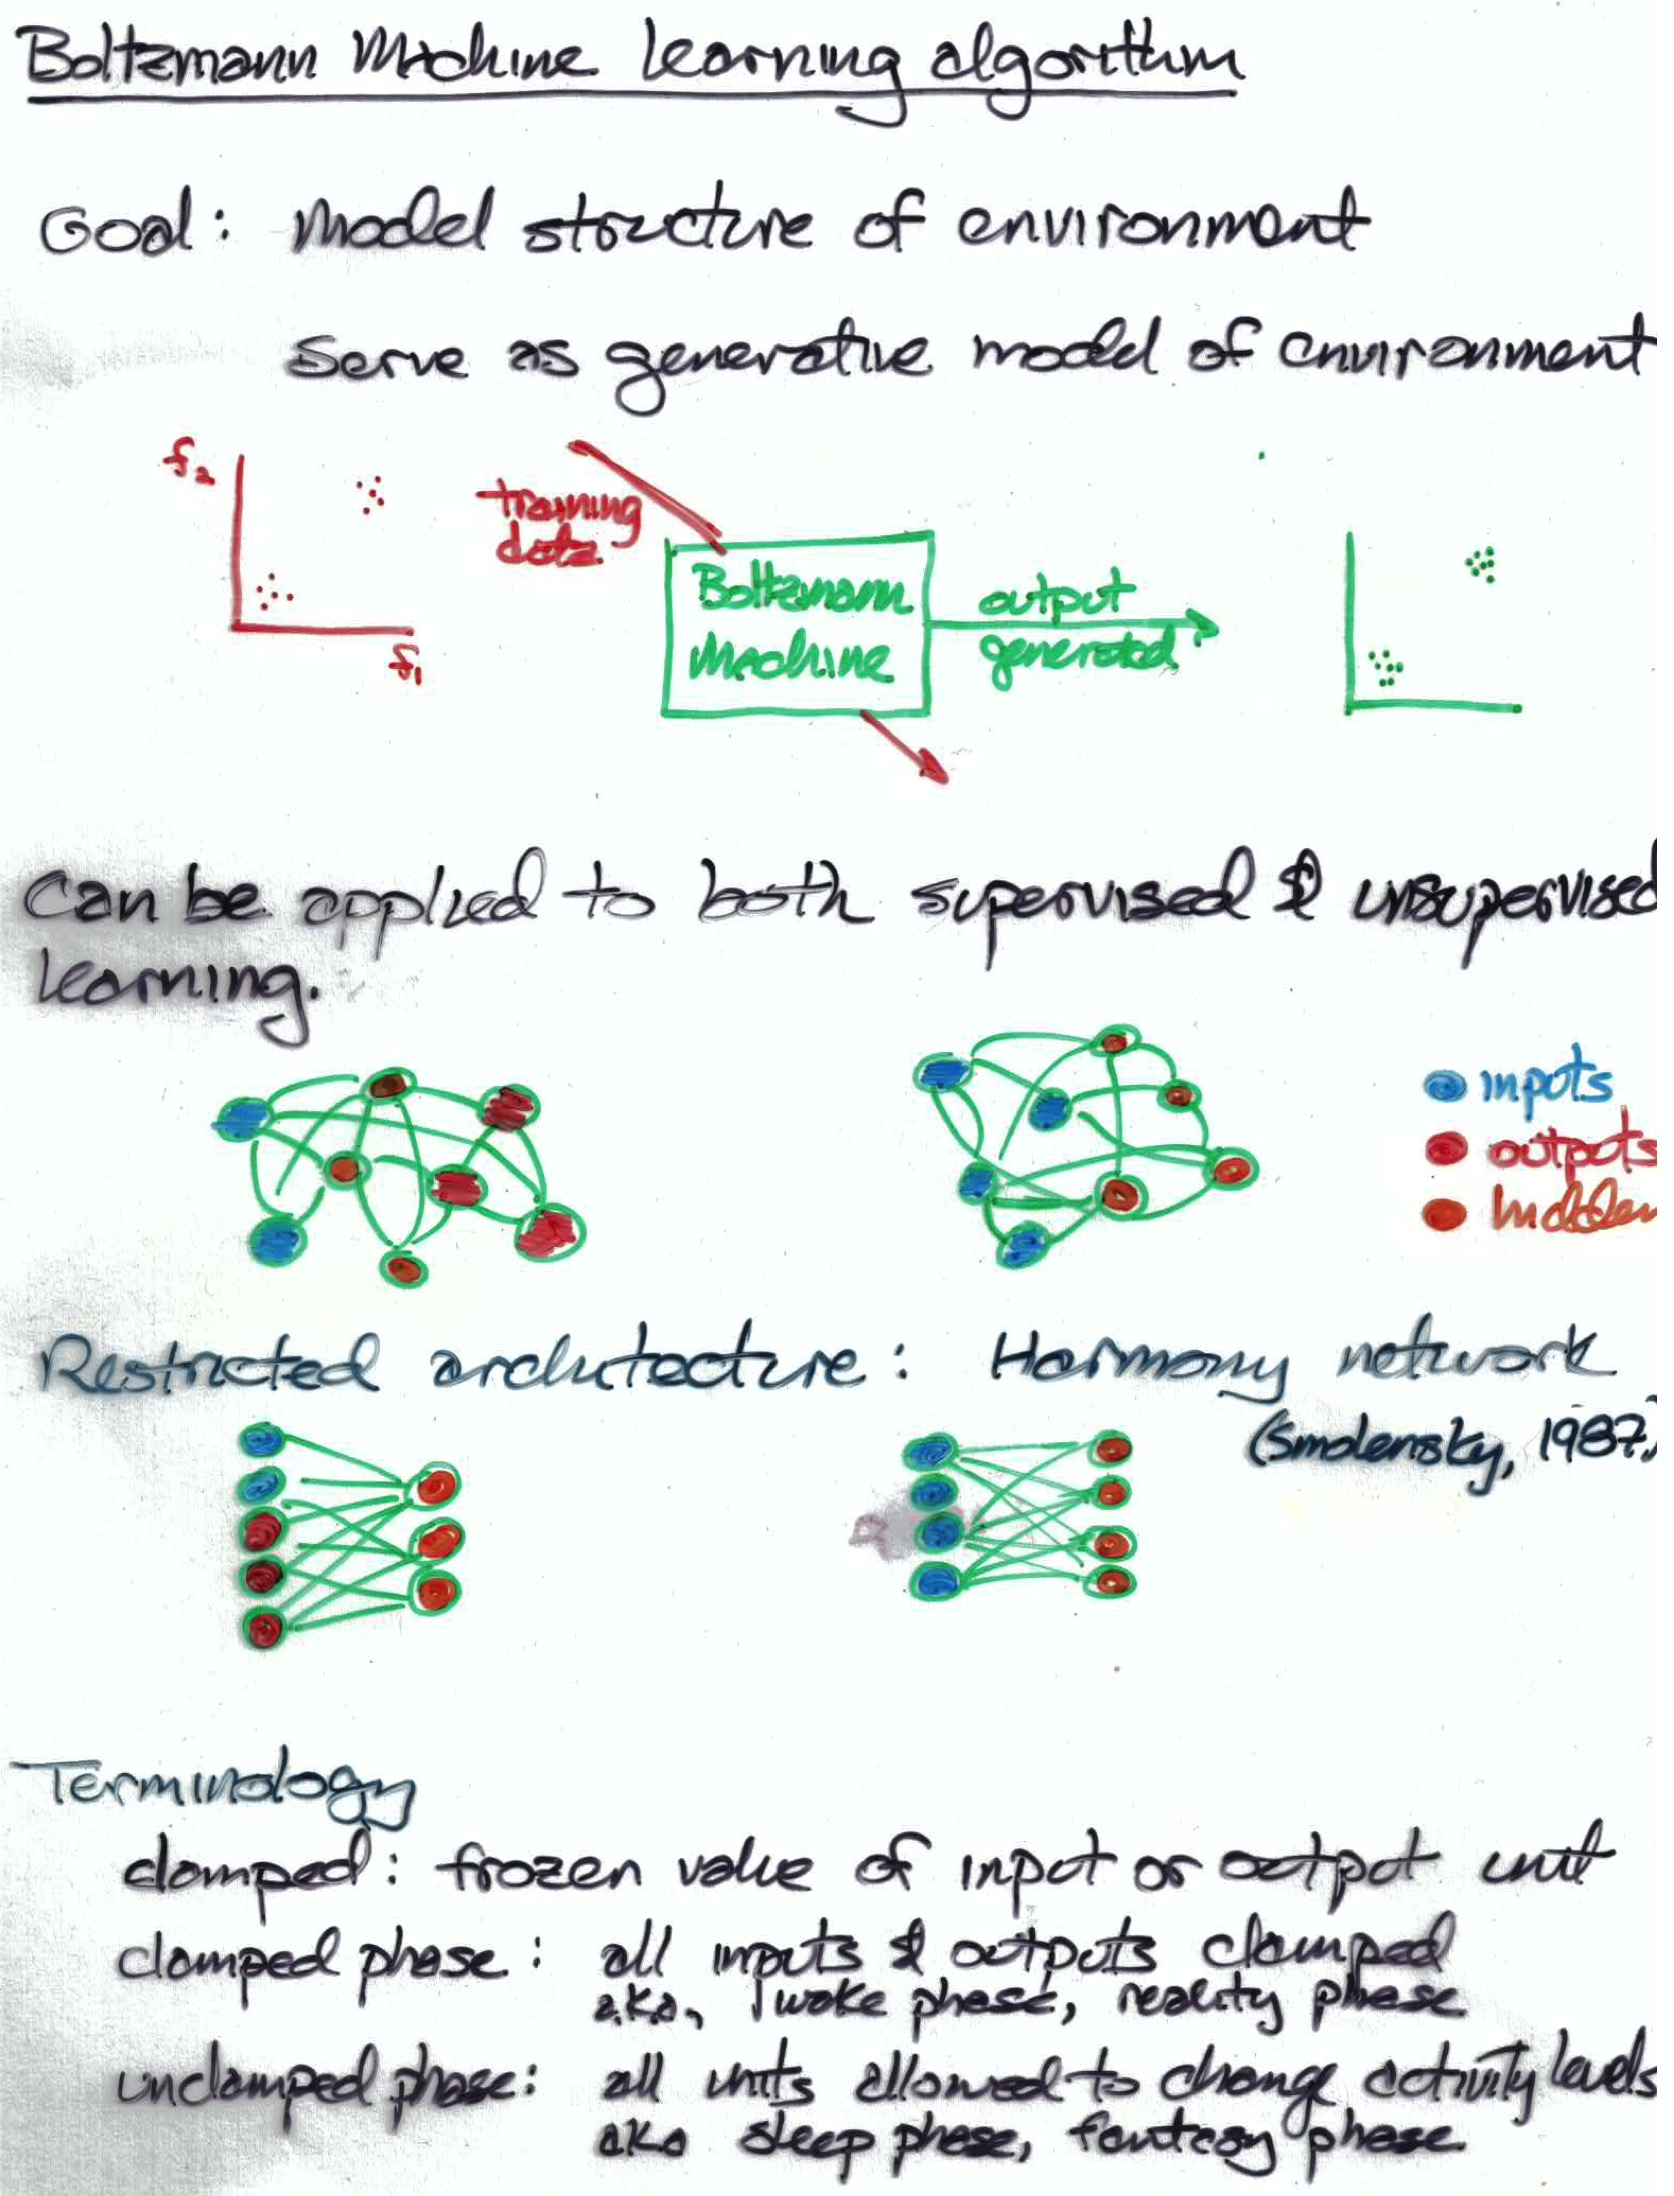 Boltzmann Machine learning algorithm
Goal: Model structure of environment
Serve as generative model of environment
f2
training
data
f1
Boltzmann
Machine
output
generated
Can be applied to both supervised & unsupervised
learning.
inputs
outputs
hidden
Restricted architecture: Harmony network
(Smolensky, 1987)
Terminology
clamped: frozen value of input or output unit
clamped phase: all inputs & outputs clamped
a.k.a., wake phase, reality phase
unclamped phase: all units allowed to change activity levels
aka sleep phase, fantasy phase